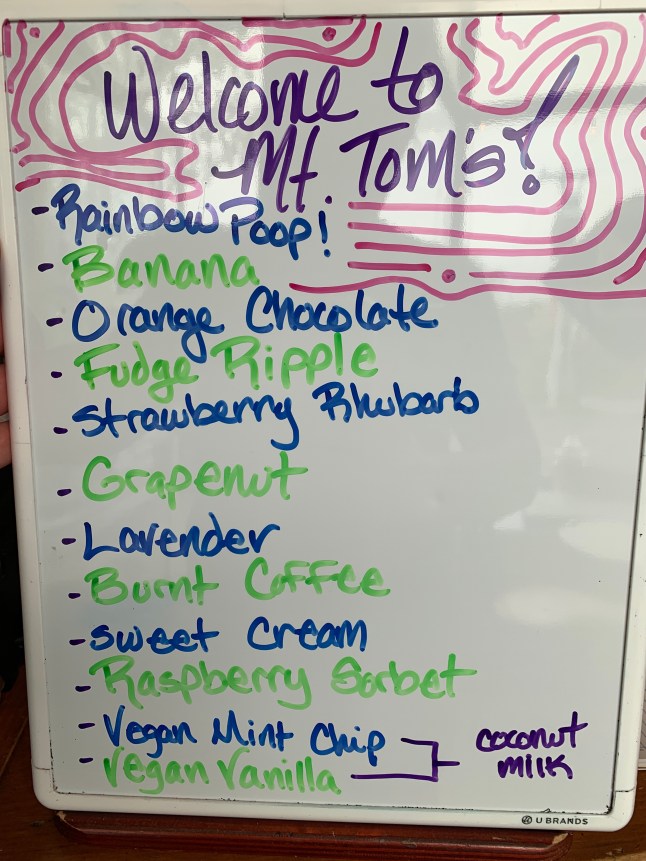 Welcome to
Mt. Tom's!
- Rainbow Poop!
- Banana
- Orange Chocolate
- Fudge Ripple
- Strawberry Rhubarb
- Grapenut
- Lavender
- Burnt Coffee
- Sweet Cream
- Raspberry Sorbet
- Vegan Mint Chip
- Vegan Vanilla
coconut
milk
U BRANDS